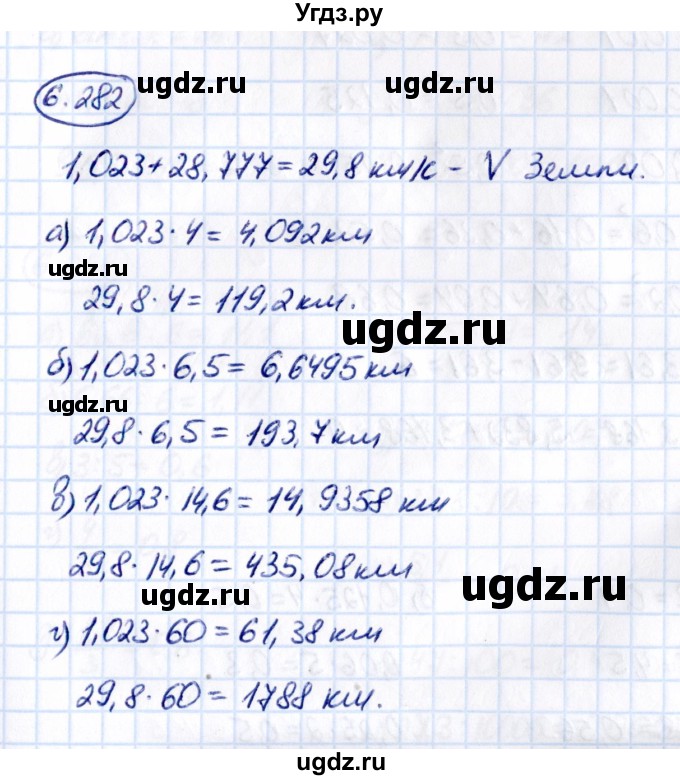 Угдз.ру
6.282
ugdz.ru
ugdz.ru
1,023+28,777=29,8 км/с - V Земли.
а) 1,023·4=4,092км
ugdz.ru
29,8·4=119,2км.
ugdz.ru
б) 1,023·6,5=6,6495км
ugdz.ru
29,8·6,5=193,7км
в) 1,023·14,6=14,9358км
29,8·14,6=435,08км
ugdz.ru
ugdz.ru
г) 1,023·60=61,38км
29,8·60=1788 км.
ugdz.ru